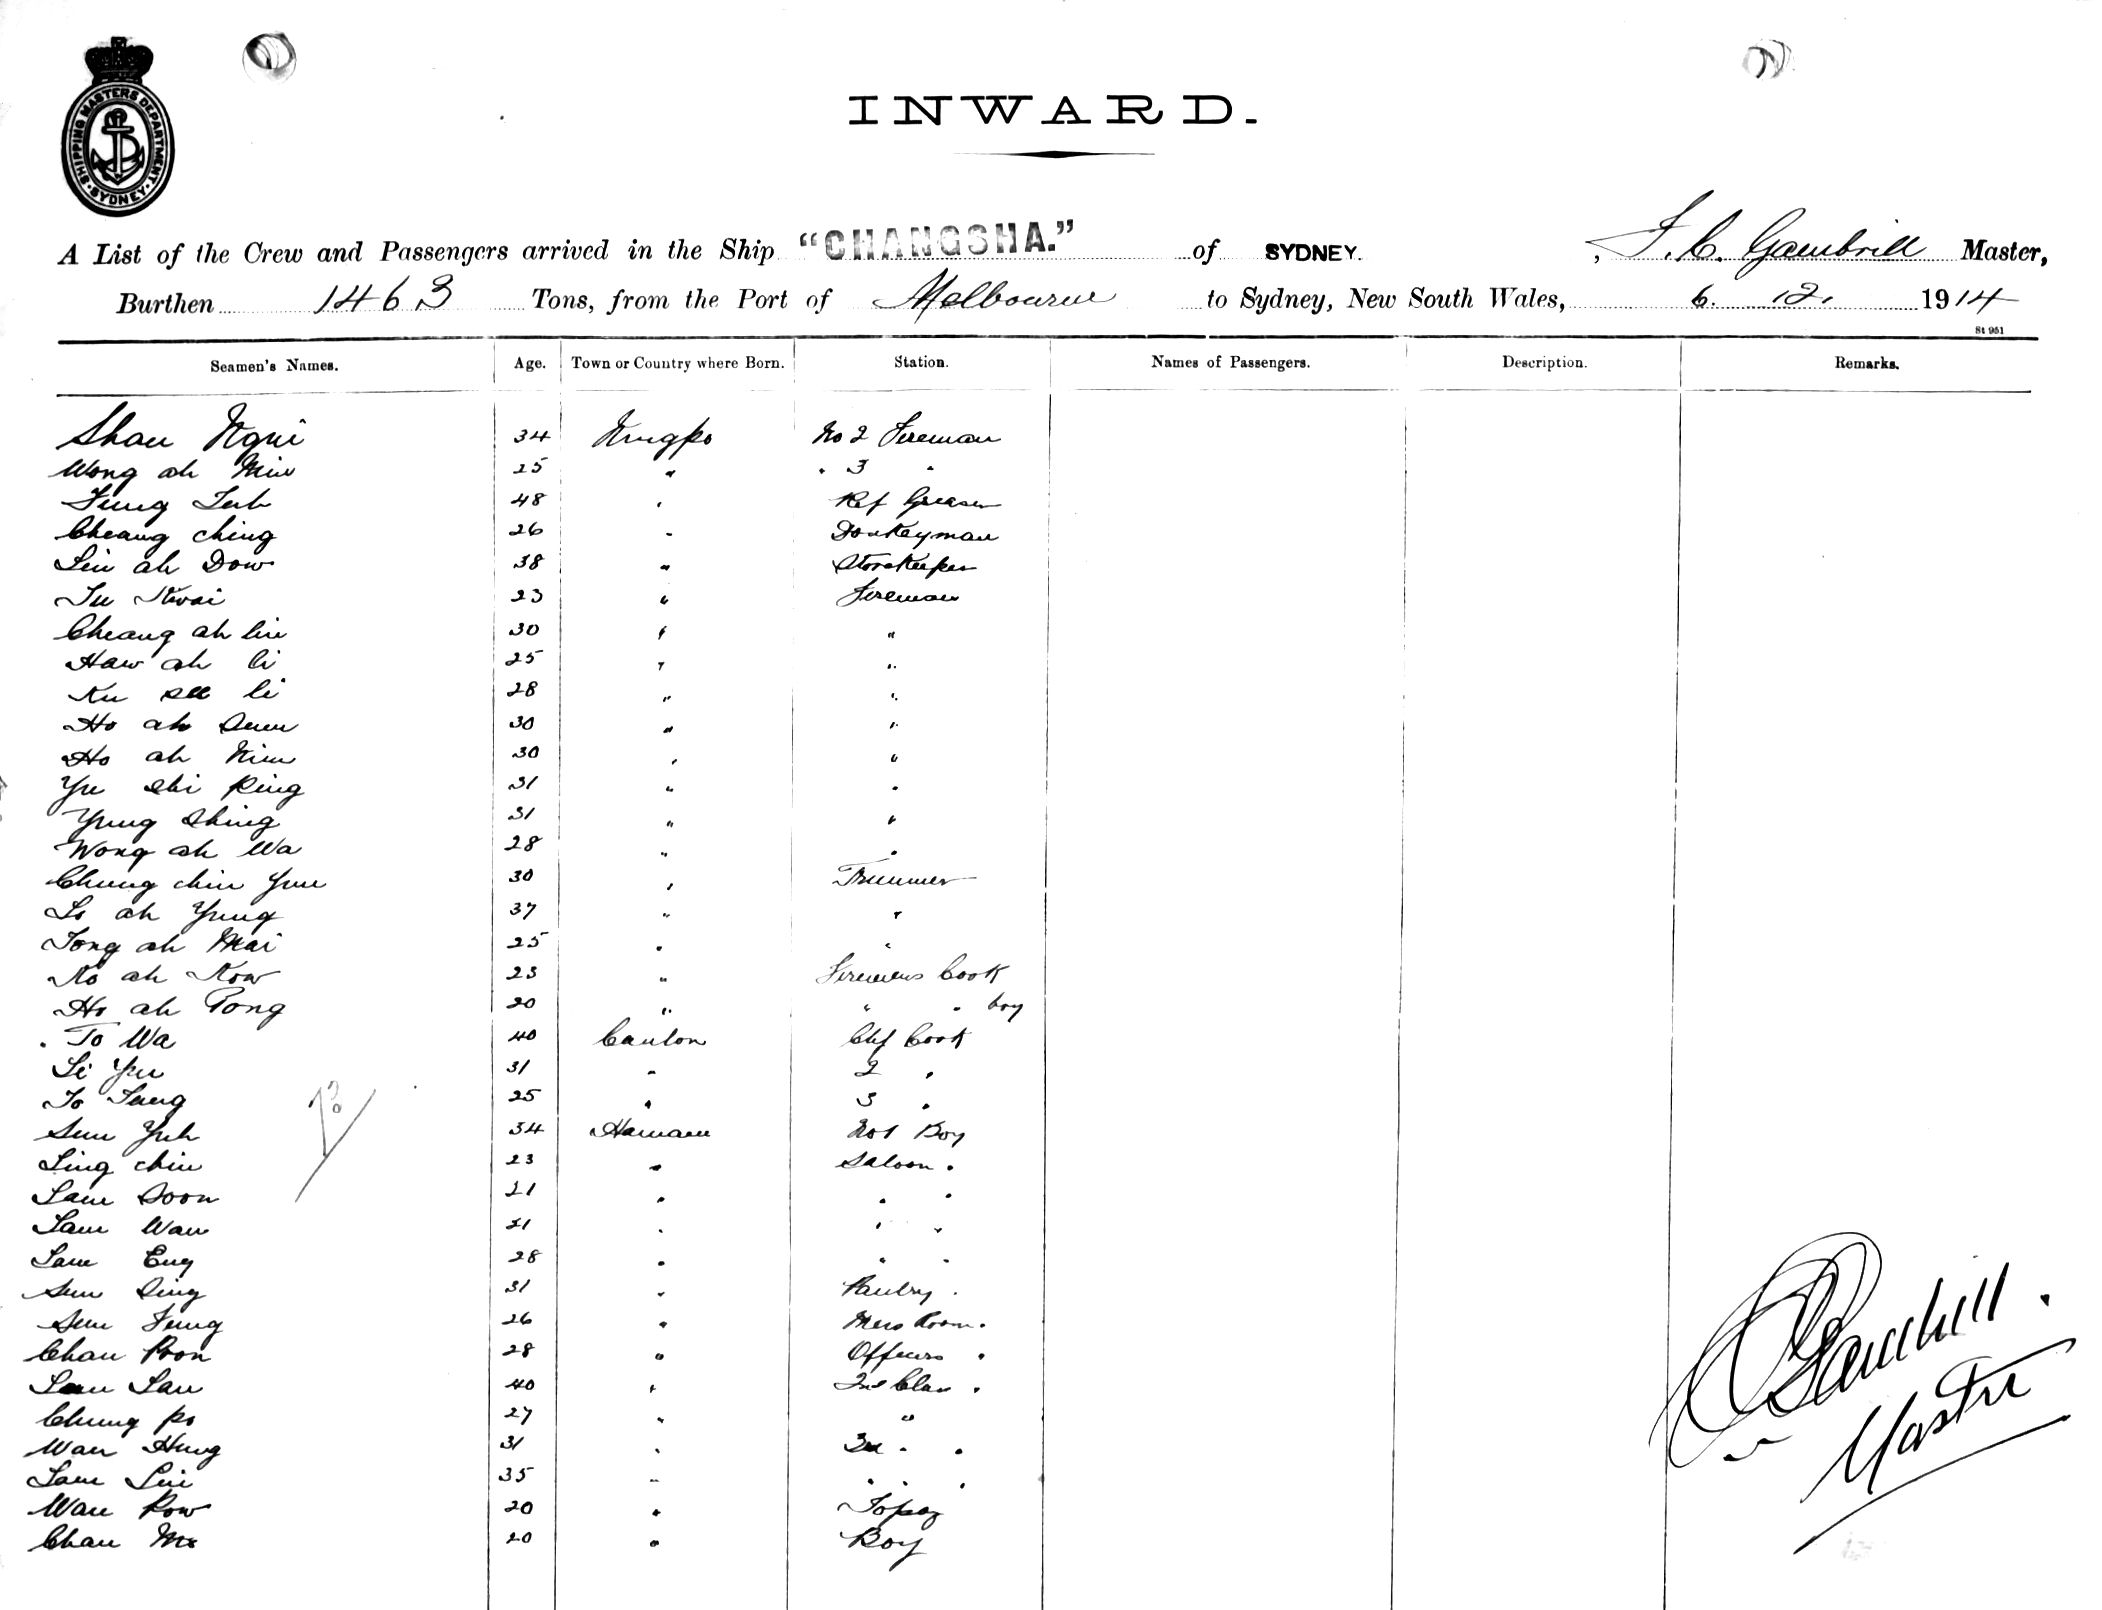 SHIPPING MASTERS DEPARTMENT
SYDNEY
INWARD.
A List of the Crew and Passengers arrived in the Ship "CHANGSHA." of SYDNEY. , Gambrill Master,
Burthen 1463 Tons, from the Port of Melbourne to Sydney, New South Wales, 6. 12. 1914
St 951
Seamen's Names. Age. Town or Country where Born. Station. Names of Passengers. Description. Remarks.
Shau Ngui 34 Ningpo No 2 Fireman
Wong ah Min 25 " " 3 "
Fung 48 " Ref Greaser
Cheang Ching 26 " Donkeyman
Lin ah Dow 38 " Storekeeper
Kwai 23 " Fireman
Cheang ah lin 30 " "
Haw ah li 25 " "
Ku see li 28 " "
Ho ah Sum 30 " "
Ho ah Nim 30 " "
Yu shi King 31 " "
Yung Shing 31 " "
Wong ah Wa 28 " "
Chung chin Yuu 30 " Trimmer
Lo ah Yung 37 " "
Tong ah Mai 25 " "
Ko ah Kow 23 " Firemens Cook
Ho ah Tong 20 " " " boy
To Wa 40 Canton Chf Cook
Li Yu 31 " 2 "
To Tang 25 " 3 "
Sun Yuh 34 Hainam No 1 Boy
Ling chin 23 " Saloon "
Lam Soon 21 " " "
Lam Wan 21 " " "
Lam Eng 28 " " "
Sun Sing 31 " Pantry "
Sun Fung 26 " Mess Room "
Chau Poon 28 " Officers "
Lam Lau 40 " 2nd Class "
Chung po 27 " "
Wan Hung 31 " 3rd " "
Lam Lin 35 " " " "
Wan Kow 20 " Topaz
Chau Mo 20 " Boy
Gambrill
Master